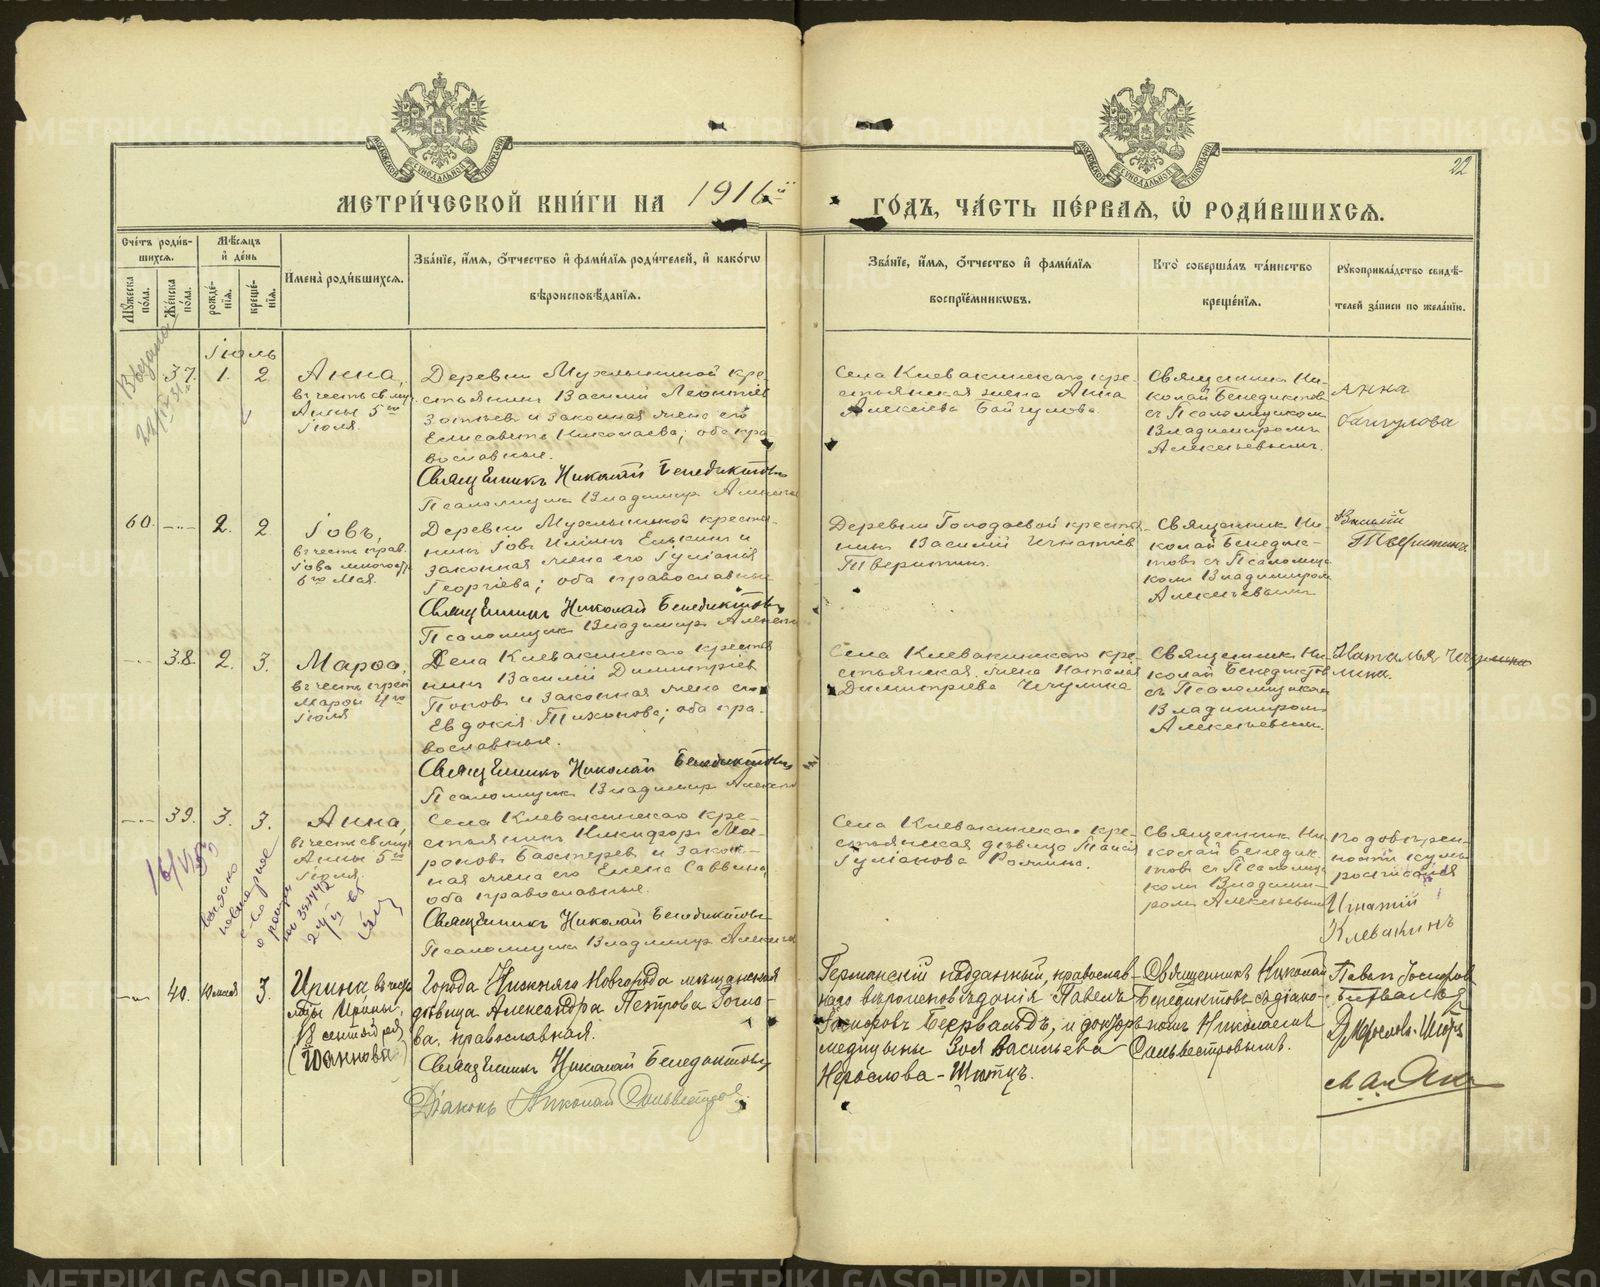 МЕТРИ́ЧЕСКОЙ КНИ́ГИ НА 1916й
ГО́ДЪ, ЧА́СТЬ ПЕ́РВАЯ, Ѿ РОДИ́ВШИХСЯ.
22
Сче́тъ роди́в-
шихся.
Мѣ́сяцъ
и҆ де́нь
Мꙋ́жеска
по́ла.
Же́нска
по́ла.
рожде́-
нїя.
креще́-
нїя.
Имена̀ роди́вшихся.
Зва́нїе, и҆́мя, ѻ҆́тчество и҆ фами́лїя роди́телей, и҆ како́гѡ
вѣроисповѣ́данїя.
Зва́нїе, и҆́мя, ѻ҆́тчество и҆ фами́лїя
воспрїе́мникѡвъ.
Кто̀ соверша́лъ та́инство
креще́нїя.
Рꙋкоприкла́дство свидѣ́-
телей за́писи по жела́нїю.
Іюль
37. 1. 2
Анна,
въ честь св. муч.
Анны 5го
Іюля.
Деревни Мухлыниной кре-
стьянинъ Василій Леонтіев
Зотьевъ и законная жена его
Елисавета Николаева; оба пра-
вославные.
Священникъ Николай Бенедиктовъ
Псаломщикъ Владимир
Села Клевакинскаго кре-
стьянская жена Анна
Алексеева Бачгулова
Священникъ Ни-
колай Бенедиктовъ
съ Псаломщикомъ
Владимиромъ
Алексеевымъ.
Анна
60. 2. 2
Іовъ,
въ честь прав.
Іова многостр.
6го Мая.
Деревни Мухлыниной крестья-
нинъ Іовъ Илiинъ Елькинъ и
законная жена его Іуліанія
Георгіева; оба православные
Священникъ Николай Бенедиктовъ
Псаломщикъ Владимир
Деревни Гоподаевой крестья-
нинъ Василій Игнатіев
Тверитин.
Священникъ Ни-
колай Бенедик-
товъ съ Псаломщи-
комъ Владимиромъ
Алексеевымъ
Василій
Тверитинъ
38. 2. 3.
Марѳа,
въ честь преп.
Марѳы 4го
Іюля
Села Клевакинскаго крестья-
нинъ Василій Димитріев
Поповъ и законная жена его
Евдокія Тихонова; оба пра-
вославные.
Священникъ Николай Бенедиктовъ
Псаломщикъ Владимир
Села Клевакинскаго кре-
стьянская жена Наталія
Димитріева Ичулина
Священникъ Ни-
колай Бенедиктов
съ Псаломщиком
Владимиромъ
Алексеевымъ.
Наталья
39. 3. 3.
Анна,
въ честь св. муч.
Анны 5го
Іюля.
Села Клевакинскаго кре-
стьянинъ Никифоръ Ма-
роновъ Бахтеревъ и закон-
ная жена его Елена Саввина,
оба православные.
Священникъ Николай Бенедиктовъ
Псаломщикъ Владимир
Села Клевакинскаго кре-
стьянская девица Таисія
Іуліанова Ромина.
Священникъ Ни-
колай Бенедик-
товъ съ Псаломщи-
комъ Владими-
ромъ Алексеевымъ
По довѣрен-
ности кумы
росписался
Игнатій
Клевакинъ
40. 3.
Ирина, въ честь
мцы Ирины,
18 сентября
Іоаннова
Города Нижняго Новгорода мѣщанская
дѣвица Александра Петрова Гогло-
ва, православная.
Священникъ Николай Бенедиктовъ
Діаконъ Николай Сильвестровъ
Германскій подданный, православ-
наго вѣроисповѣданія Павелъ
Госифовъ Беервальдъ, и докторъ
медицины Зоя Васильева
Нерослова-Шютцъ.
Священникъ Николай
Бенедиктовъ съ діако-
номъ Николаемъ
Сильвестровымъ.
Павел Іосифов
Беервальд